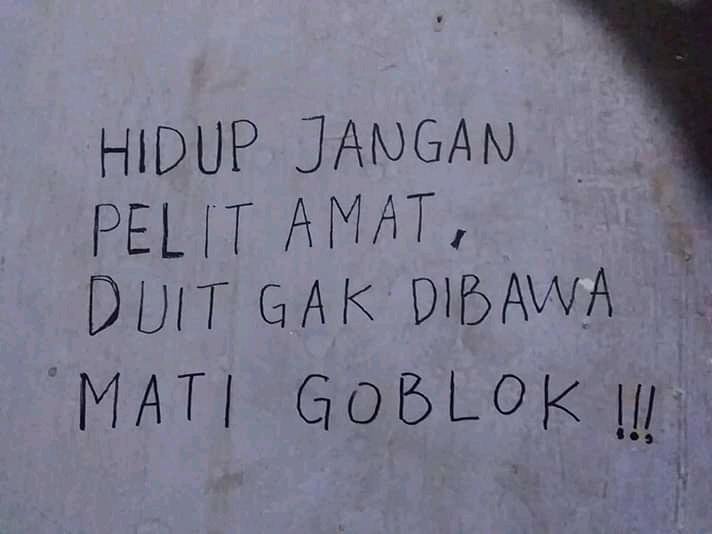 HIDUP JANGAN
PELIT AMAT,
DUIT GAK DIBAWA
MATI GOBLOK !!!